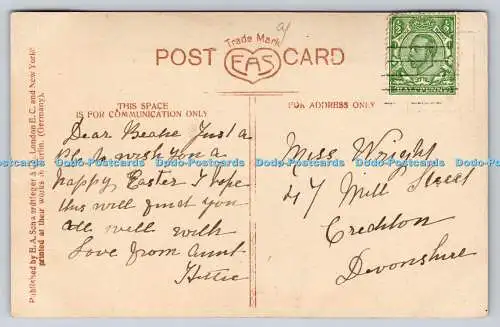 a/
Trade Mark
POST CARD
EAS
HALFPENNY
THIS SPACE
IS FOR COMMUNICATION ONLY
FOR ADDRESS ONLY
Published by E.A. Schwerdtfeger & Co. London E.C. and New York.
printed at their works in Berlin. (Germany).
Dear Beake Just a
P.C. to wish you a
happy Easter I hope
this will find you
all well with
Love from aunt
Hettie
Miss Wright
47 Mill Street
Crediton
Devonshire
Dodo Postcards Dodo Postcards Dodo Postcards Dodo Postcards Dodo Postcards Dodo Postcards